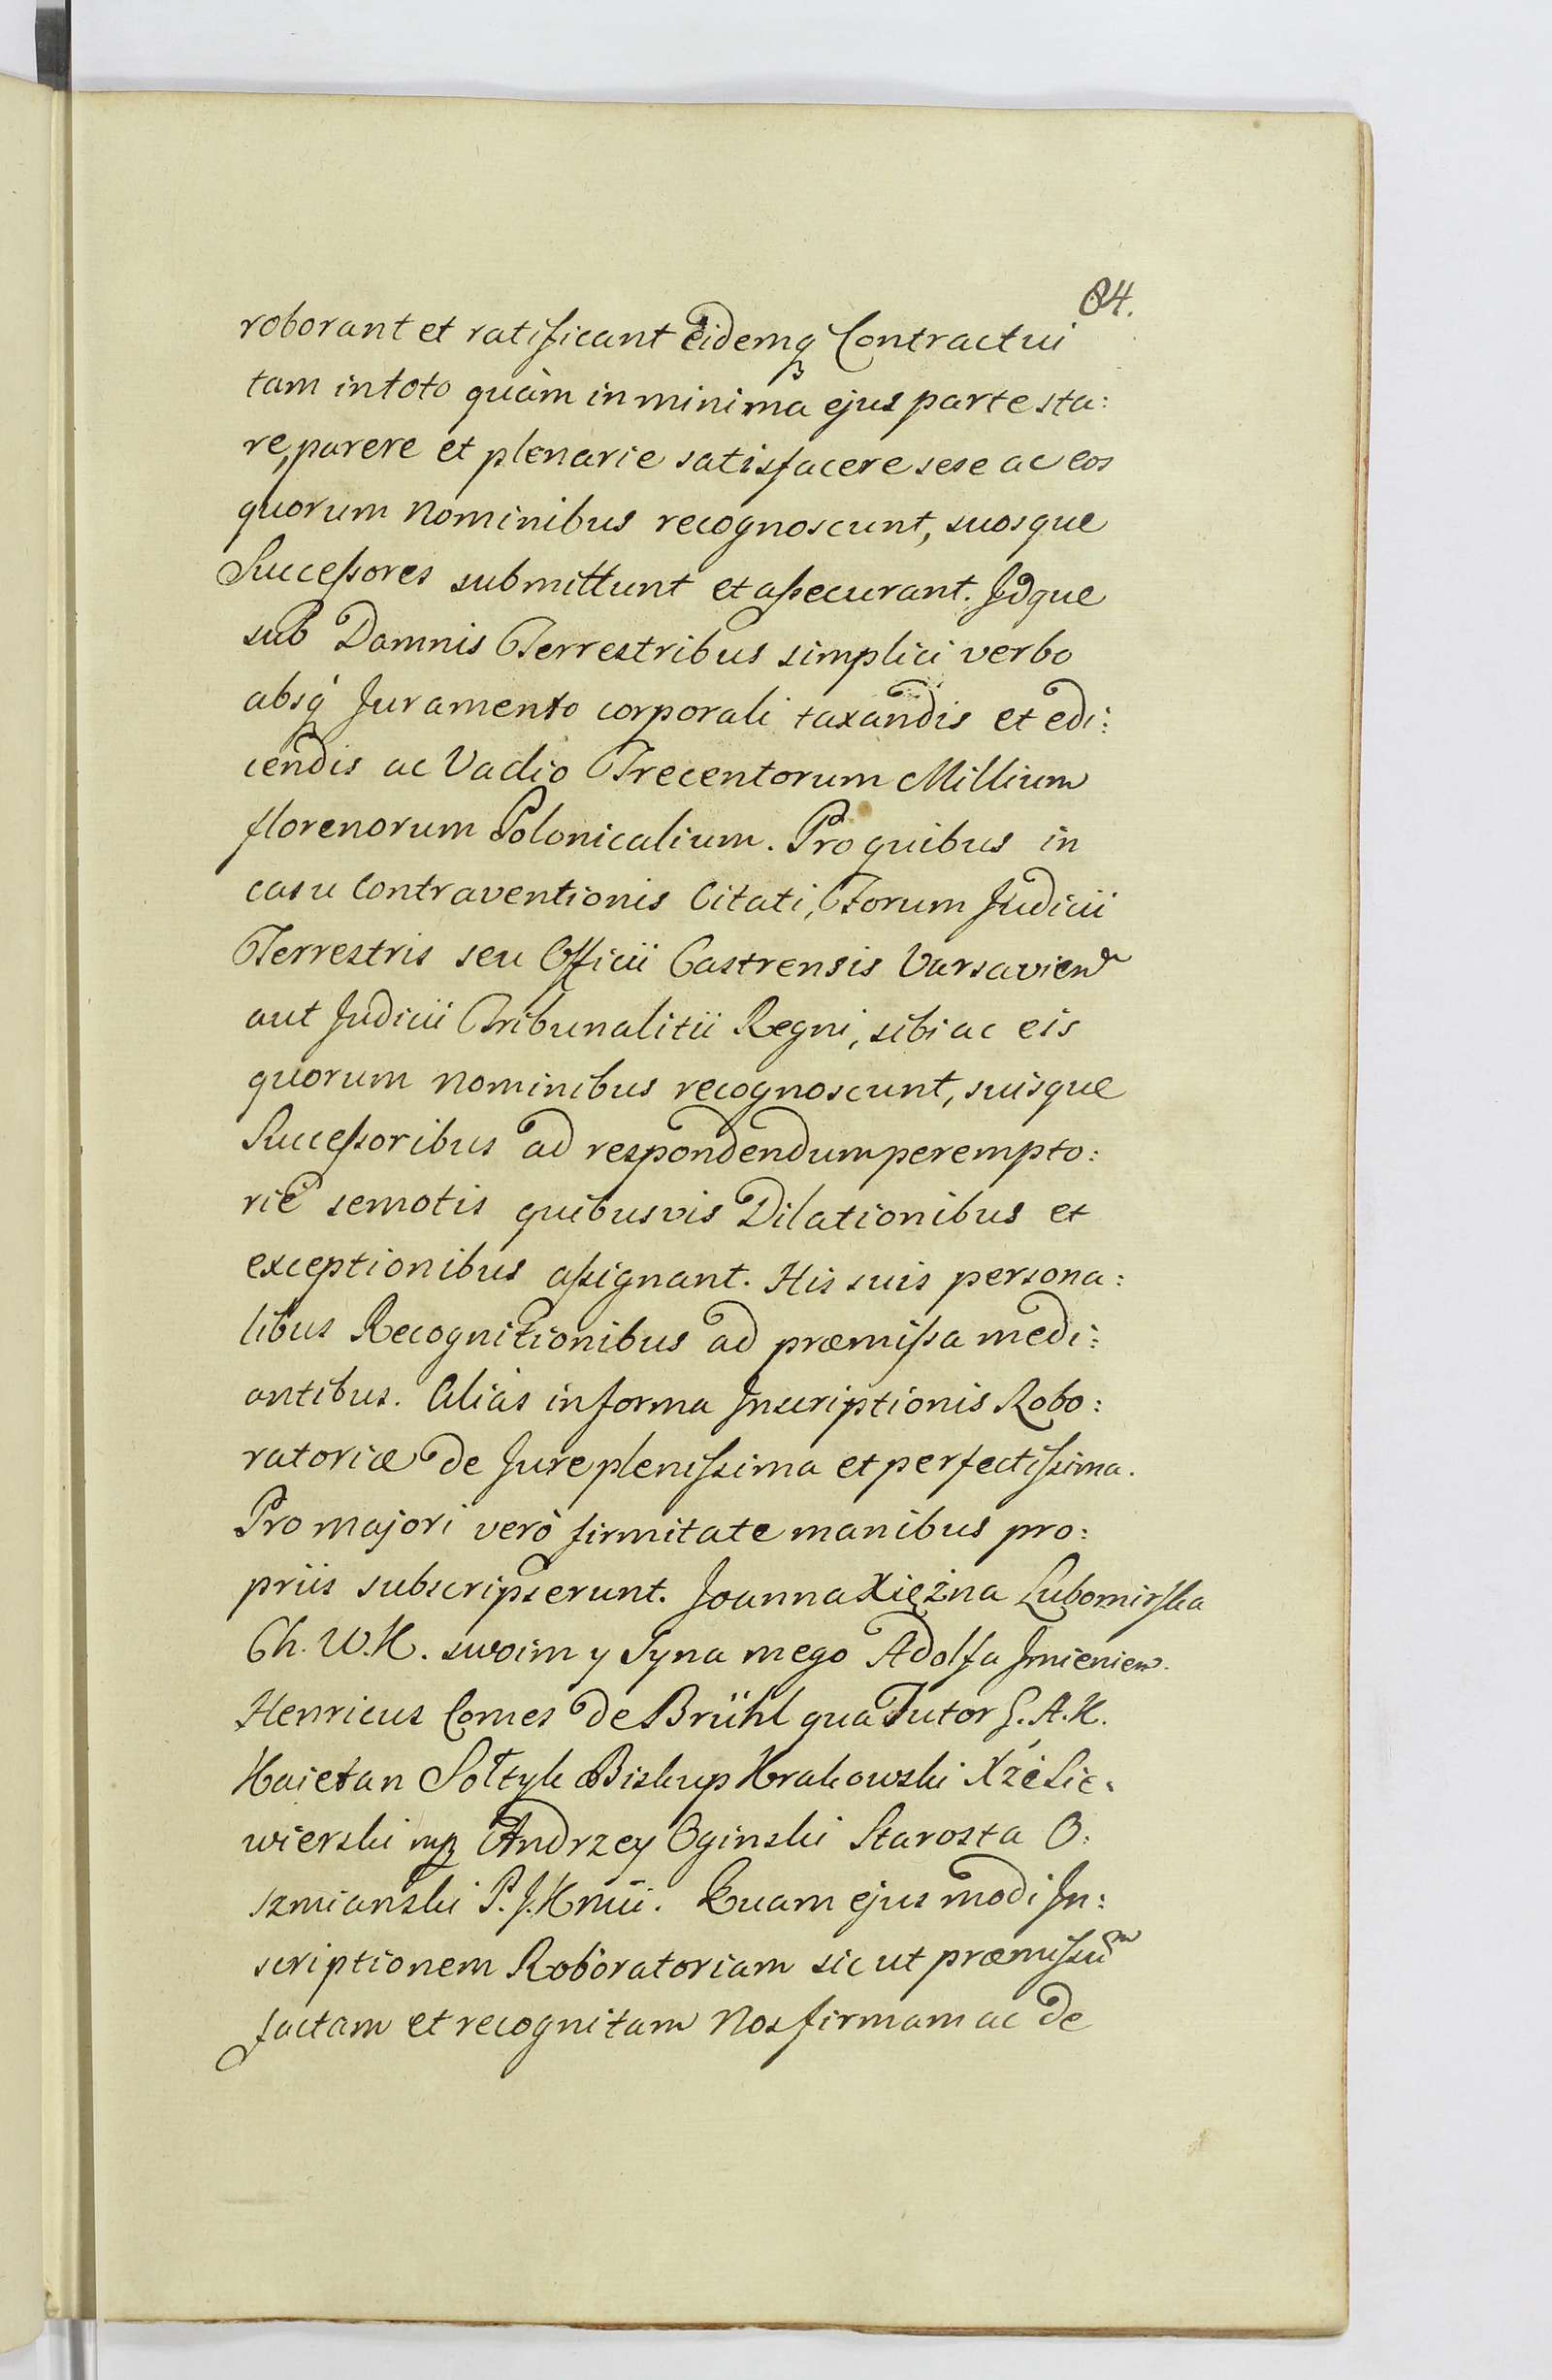 84.
roborant et ratificant eidemq́ꝫ Contractui
tam in toto quàm in minima ejus parte sta:
re, parere et plenarie satisfacere sese ac eos
quorum nominibus recognoscunt, suosque
Successores submittunt et assecurant. Idque
sub Damnis Terrestribus simplici verbo
absq́ Juramento corporali taxandis et edi:
cendis ac Vadio Trecentorum Millium
florenorum Polonicalium. Pro quibus in
casu Contraventionis Citati, Forum Judicii
Terrestris seu Officii Castrensis Varsavien
aut Judicii Tribunalitii Regni, sibi ac eis
quorum nominibus recognoscunt, suisque
Successoribus ad respondendum perempto:
riè semotis quibusvis Dilationibus et
exceptionibus assignant. His suis persona:
libus Recognitionibus ad præmissa medi:
antibus. Aliàs in forma Inscriptionis Robo:
ratoriæ de Jure plenissima et perfectissima.
Pro majori verò firmitate manibus pro:
priis subscripserunt. Joanna Xiężna Lubomirska
Ch. W. K. swoim y Syna mego Adolfa Jmieniem.
Henricus Comes de Brühl qua Tutor S. A. K.
Kaietan Sołtyk Biskup Krakowski Xżė Sie:
wierski mp Andrzey Oginski Starosta O:
szmianski P. J. K mii. Quam ejus modi In:
scriptionem Roboratoriam sic ut præmissũm
factam et recognitam Nos firmam ac de